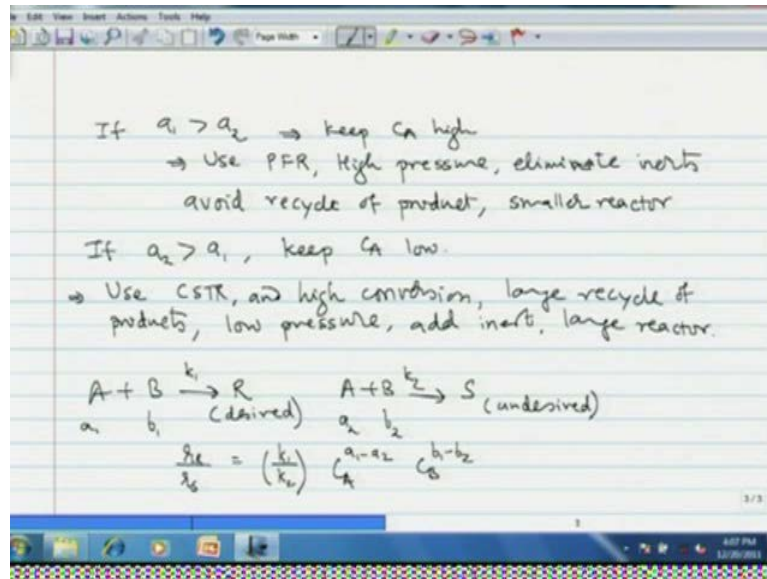 Edit View Insert Actions Tools Help
Page Width
If a₁ > a₂ ⇒ keep CA high
⇒ Use PFR, High pressure, eliminate inerts
avoid recycle of product, smaller reactor
If a₂ > a₁, keep CA low.
⇒ Use CSTR, and high conversion, large recycle of
products, low pressure, add inert, large reactor.
A + B →k₁ R (desired) A + B →k₂ S (undesired)
a₁ b₁ a₂ b₂
= (k₁/k₂) CA^(a₁-a₂) CB^(b₁-b₂)
3/3
3
4:07 PM
12/20/2011